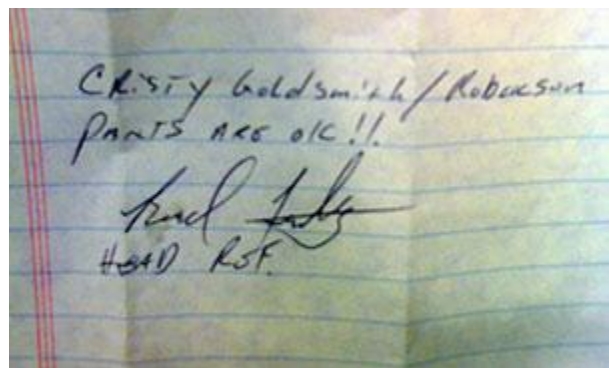 CRISTY Goldsmith/Roberson
PANTS ARE OK!!
HEAD REF.